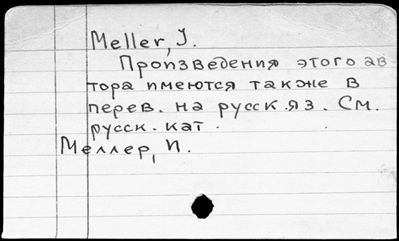 Meller, I.
Произведения этого ав
тора имеются также в
перев. на русск. яз. См.
русск. кат.
Меллер, И.